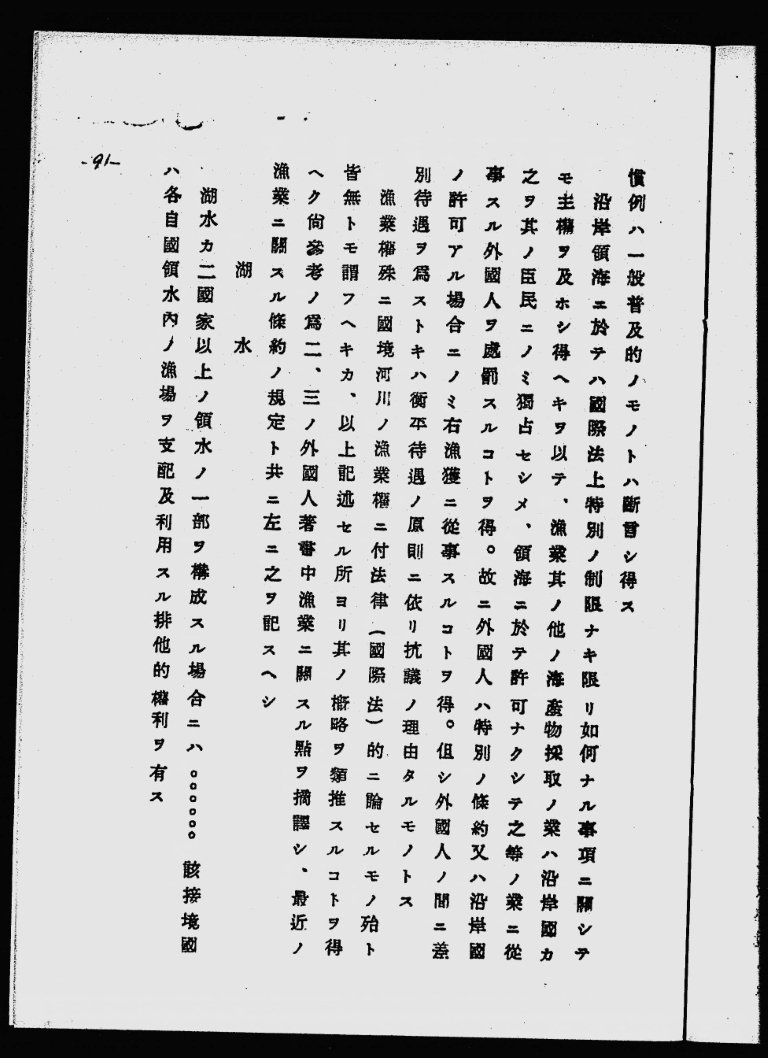 慣例ハ一般普及的ノモノトハ斷言シ得ス
沿岸領海ニ於テハ國際法上特別ノ制限ナキ限リ如何ナル事項ニ關シテ
モ主權ヲ及ホシ得ヘキヲ以テ、漁業其ノ他ノ海產物採取ノ業ハ沿岸國カ
之ヲ其ノ臣民ニノミ獨占セシメ、領海ニ於テ許可ナクシテ之等ノ業ニ從
事スル外國人ヲ處罰スルコトヲ得。故ニ外國人ハ特別ノ條約又ハ沿岸國
ノ許可アル場合ニノミ右漁獲ニ從事スルコトヲ得。但シ外國人ノ間ニ差
別待遇ヲ爲ストキハ衡平待遇ノ原則ニ依リ抗議ノ理由タルモノトス
漁業權殊ニ國境河川ノ漁業權ニ付法律（國際法）的ニ論セルモノ殆ト
皆無トモ謂フヘキカ、以上記述セル所ヨリ其ノ槪略ヲ類推スルコトヲ得
ヘク尙參考ノ爲二、三ノ外國人著書中漁業ニ關スル點ヲ摘譯シ、最近ノ
漁業ニ關スル條約ノ規定ト共ニ左ニ之ヲ記スヘシ
湖水
湖水カ二國家以上ノ領水ノ一部ヲ構成スル場合ニハ。。。。。。該接境國
ハ各自國領水內ノ漁場ヲ支配及利用スル排他的權利ヲ有ス
-91-